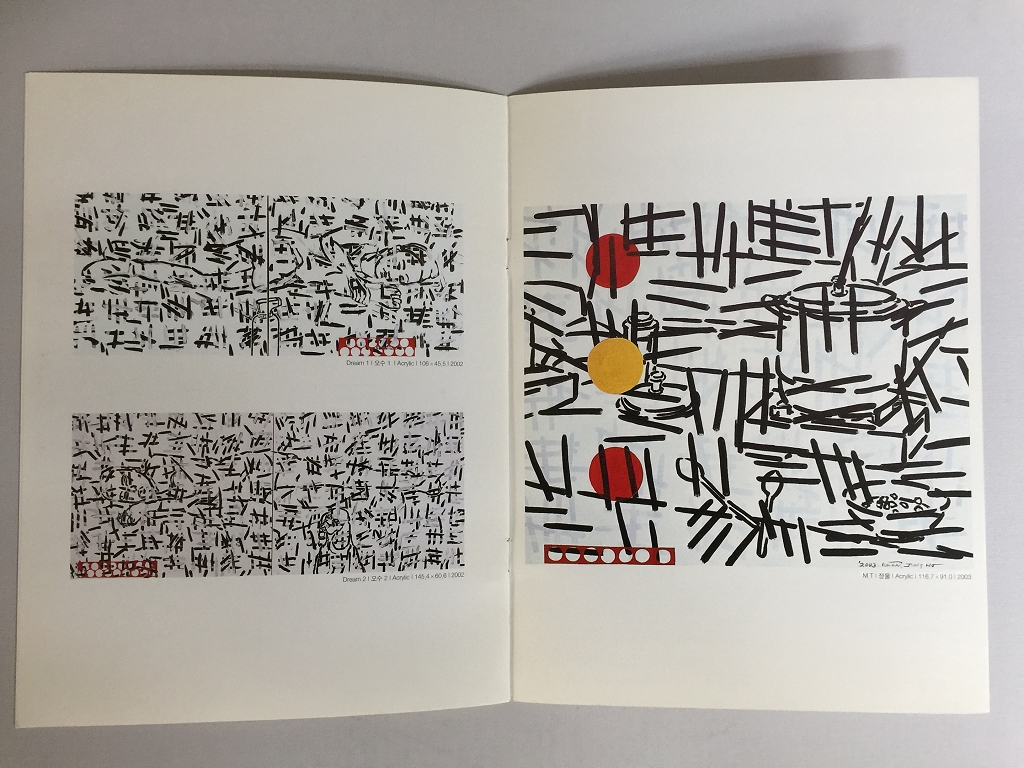 Dream 1 I 모수 1 I Acrylic I 106×45.5 I 2002
Dream 2 I 모수 2 I Acrylic I 145.4×60.6 I 2002
'2003.
M.T I 정물 I Acrylic I 116.7×91.0 I 2003